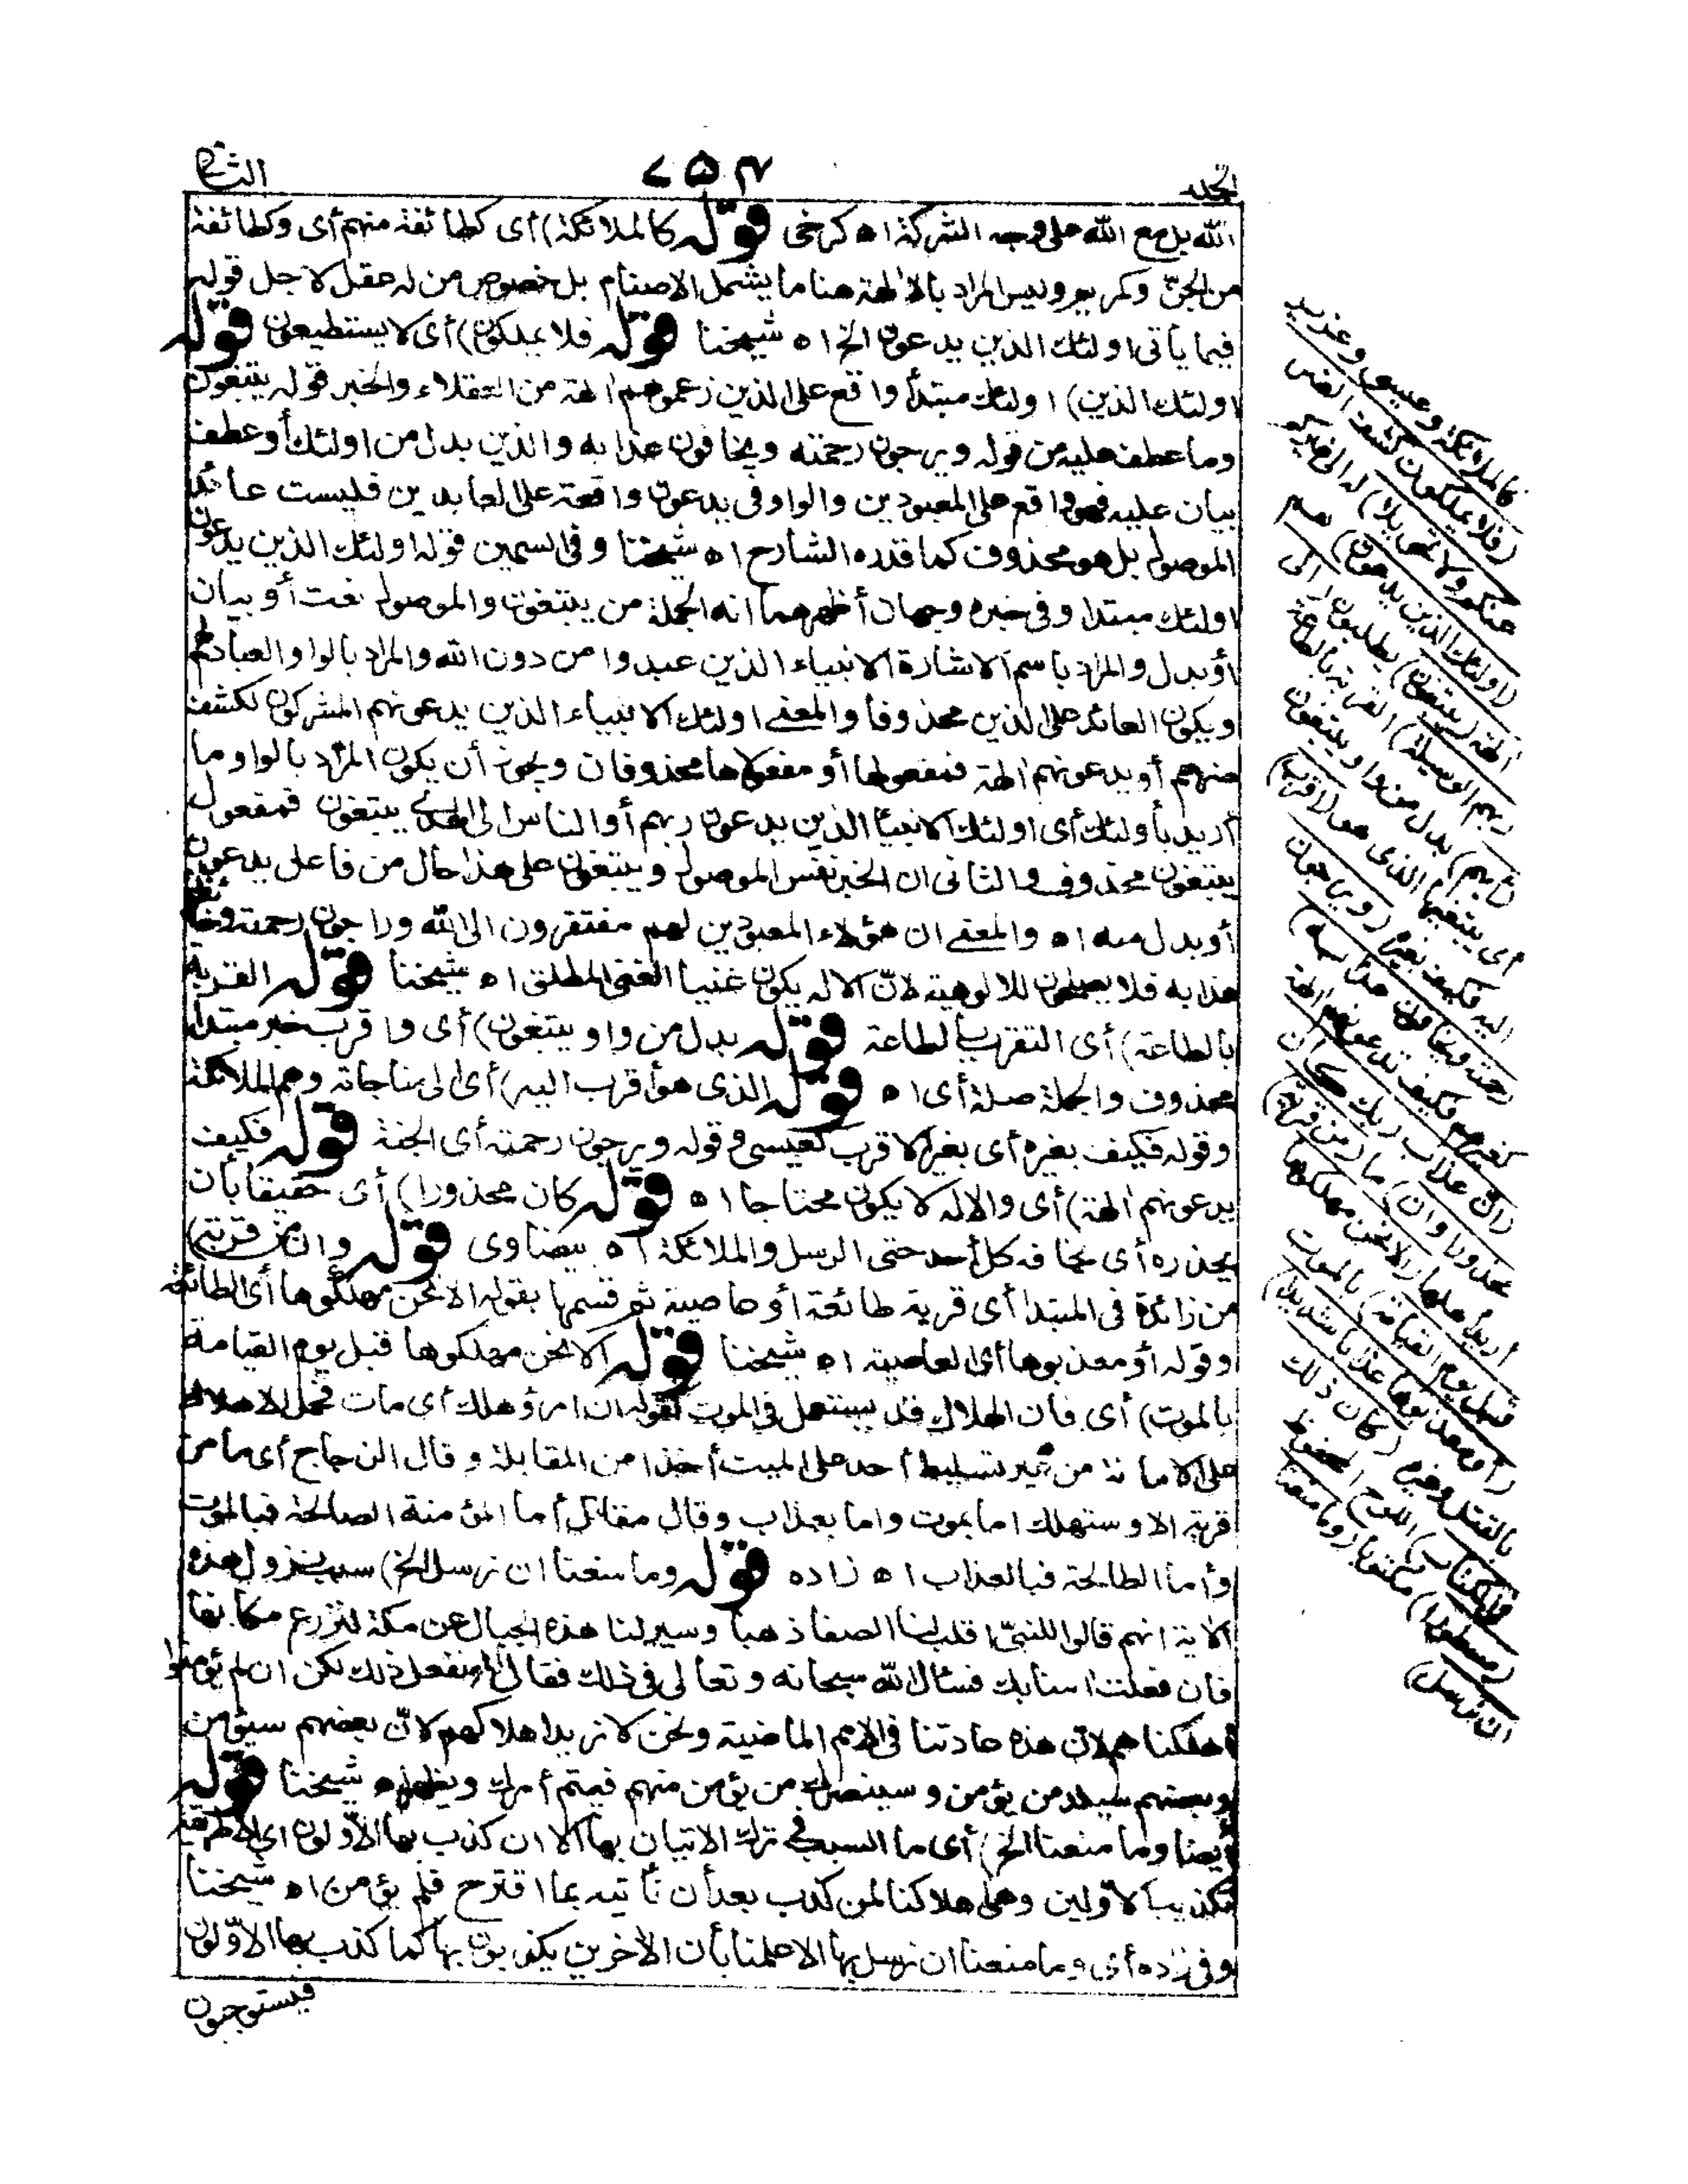 الجلد
٧٥٣
الثانى
الله بل مع الله على وجه الشركة اه كرخى قوله كالملائكة) أى كطائفة منهم أى وكطائفة
من الجنّ وكمريم وليس المراد بالآلهة هنا ما يشمل الاصنام بل خصوص من له عقل لاجل قوله
فيما يأتى اولئك الذين يدعون الخ اه شيخنا قوله فلا يملكون) أى لا يستطيعون قوله
اولئك الذين) اولئك مبتدأ واقع على الذين زعموهم آلهة من العقلاء والخبر قوله يبتغون
وما عطف عليه من قوله ويرجون رحمته ويخافون عذابه والذين بدل من اولئك أو عطف
بيان عليه فهو واقع على المعبودين والواو فى يدعون واقعة على العابدين فليست عائد
الموصول بل هو محذوف كما قدره الشارح اه شيخنا وفى السمين قوله اولئك الذين يدعون
اولئك مبتدا وفى خبره وجهان أظهرهما انه الجملة من يبتغون والموصول نعت أو بيان
أو بدل والمراد باسم الاشارة الانبياء الذين عبدوا من دون الله والمراد بالواو العباد لهم
ويكون العائد على الذين محذوفا والمعنى اولئك الانبياء الذين يدعونهم المشركون لكشف
ضرهم أو يدعونهم آلهة فمفعولها أو مفعولاها محذوفان ويجوز أن يكون المراد بالواو ما
أريد بأولئك أى اولئك الانبيا الذين يدعون ربهم أو الناس الى الهدى يبتغون فمفعول
يبتغون محذوف والثانى ان الخبر نفس الموصول ويبتغون على هذا حال من فاعل يدعون
أو بدل منه اه والمعنى ان هؤلاء المعبودين لهم مفتقرون الى الله وراجون رحمته وخائفون
عذابه فلا يصلحون للالوهية لانّ الاله يكون غنيا الغنى المطلق اه شيخنا قوله القربة
بالطاعة) أى التقرب بالطاعة قوله بدل من واو يبتغون) أى واقرب خبر مبتدأ
محذوف والجملة صلة أى اه قوله الذى هو أقرب اليه) أى الى مناجاته وهم الملائكة
وقوله فكيف بغيره أى بغير الاقرب كعيسى وقوله ويرجون رحمته أى الجنة قوله فكيف
يدعونهم آلهة) أى والاله لا يكون محتاجا اه قوله كان محذورا) أى حقيقا بأن
يحذره أى يخافه كل أحد حتى الرسل والملائكة اه بيضاوى قوله وان من قرية)
من زائدة فى المبتدا أى قرية طائعة أو عاصية ثم قسمها بقوله الا نحن مهلكوها أى الطائعة
وقوله أو معذبوها أى العاصية اه شيخنا قوله الا نحن مهلكوها قبل يوم القيامة
بالموت) أى فان الهلاك قد يستعمل فى الموت كقوله ان امرؤ هلك أى مات فحمل الاهلاك
على الاماتة من غير تسليط أحد على الميت أخذا من المقابلة وقال الزجاج أى ما من
قرية الا وستهلك اما بموت واما بعذاب وقال مقاتل أما المؤمنة الصالحة فبالموت
وأما الطالحة فبالعذاب اه زاده قوله وما منعنا ان نرسل الخ) سبب نزول هذه
الاية انهم قالوا للنبىّ اقلب لنا الصفا ذهبا وسير لنا هذه الجبال عن مكة لنزرع مكانها
فان فعلت امنا بك فسأل الله سبحانه وتعالى فى ذلك فقال له نفعل ذلك لكن ان لم يؤمنوا
أهلكناهم لان هذه عادتنا فى الامم الماضية ونحن لا نريد اهلاكهم لانّ بعضهم سيؤمن
وبعضهم سيلد من يؤمن وسينصرك من يؤمن منهم فيتم أمرك ويظهر اه شيخنا قوله
أيضا وما منعنا الخ) أى ما السبب فى ترك الاتيان بها الا ان كذب بها الأولون أى
تكذيب الأولين وهلاكنا لمن كذب بعد أن نأتيه بما اقترح فلم يؤمن اه شيخنا
وفى زاده أى وما منعنا ان نرسل بها الا علمنا بأن الآخرين يكذبون بها كما كذب بها الأوّلون
فيستوجبون
كالملائكة وعيسى وعزير
(فلا يملكون كشف الضر
عنكم ولا تحويلا) له الى غيركم
(اولئك الذين يدعون) هم
آلهة (يبتغون) يطلبون (الى
ربهم الوسيلة) القربة بالطاعة
(أيهم) بدل من واو يبتغون
أى يبتغيها الذى هو (اقرب)
اليه فكيف بغيره (ويرجون
رحمته ويخافون عذابه)
كغيرهم فكيف تدعونهم آلهة
(ان عذاب ربك كان
محذورا وان) ما (من قرية)
أريد أهلها (الا نحن مهلكوها
قبل يوم القيامة) بالموت
(أو معذبوها عذابا شديدا)
بالقتل وغيره (كان ذلك
فى الكتاب) اللوح المحفوظ
(مسطورا) مكتوبا (وما منعنا
ان نرسل)